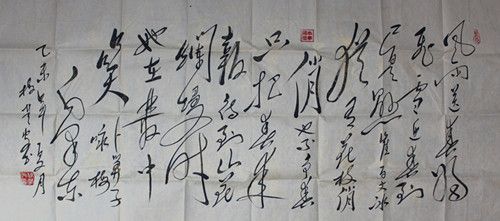 风雨送春归
飞雪迎春到
已是悬崖百丈冰
犹有花枝俏
俏也不争春
只把春来
报待到山花
烂漫时
她在丛中
笑 卜算子
咏梅
毛泽东
乙未年夏月